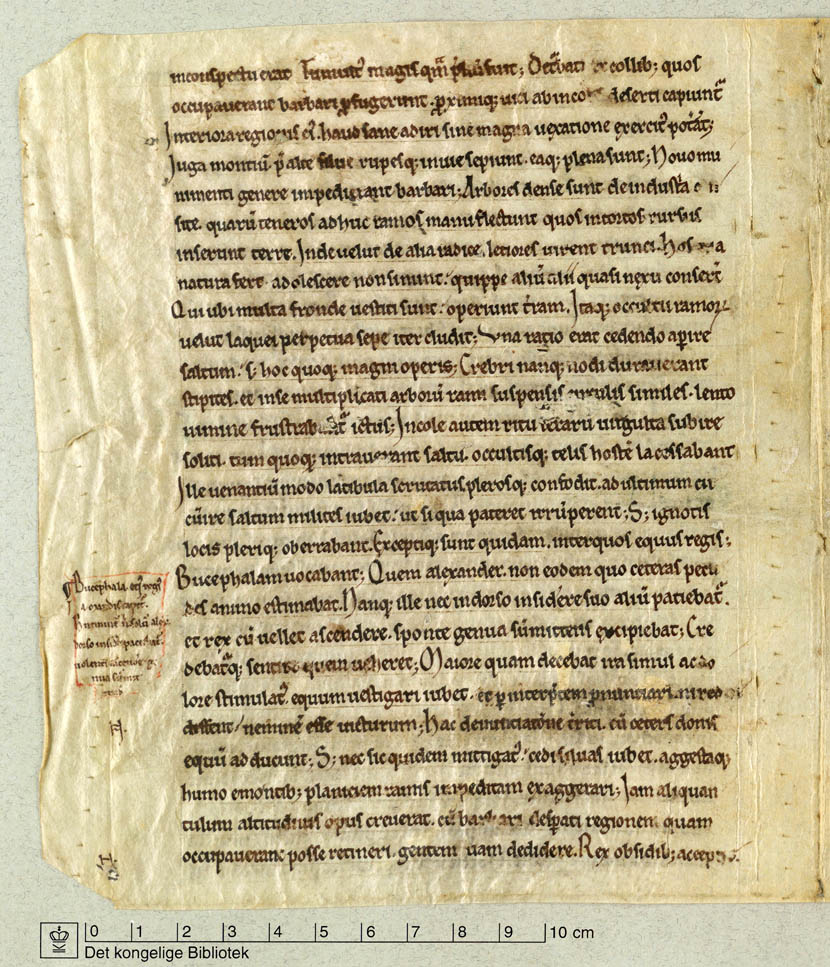 inconspectu erat magis qm̄
collib; quos
occupauerant barbari ꝓfugerunt. ꝓximiq; uici ab deserti capiunt᷑
Interiora regionis haud sane adiri sine magna uexatione exercit᷒ pot᷑at;
Juga montiū p̄alte rupesq; inuie sepiunt. eaq; plena sunt; Nouo mu
nimenti genere impedierant barbari; Arbores dense sunt de industria
site. quarū teneros adhuc ramos manu flectunt quos intortos rursus
inserunt terre. Inde uelut de alia radice. letiores uirent trunci. Hos
natura fert adolescere non sinunt. quippe aliū alii quasi nexu consert᷑
Qui ubi multa fronde uestiti sunt. operiunt t̄ram. Itaq; occulti ramoꝝ
uelut laquei perpetua sepe iter cludit; Vna ratio erat cedendo aꝑire
saltum. s; hoc quoq; magni operis; Crebri nanq; nodi durauerant
stipites. et inse multiplicati arborū rami suspensis similes. lento
uimine ictus; Incole autem ritu ferarū uirgulta subire
soliti. tum quoq; intrauerant saltū. occultisq; telis hostē lacessabant
Ille uenantiū modo latibula scrutatus plerosq; confodit. ad ultimum
saltum milites iubet. ut si qua pateret irrūperent; S; ignotis
locis pleriq; oberrabant. Exceptiq; sunt quidam. inter quos equus regis;
Bucephalam uocabant; Quem alexander. non eodem quo ceteras pecu
des animo estimabat. Nanq; ille nec in dorso insidere suo aliū patiebat᷑.
et rex cū uellet ascendere. sponte genua sūmittens excipiebat; Cre
debat᷑q; sentire quem ueheret; Maiore quam decebat ira simul ac do
lore stimulat᷒. equum uestigari iubet. et ꝑ interp̄tem ꝓnunciari. ni red
dissent. neminē esse uicturum; Hac denunciatione t̄riti. cū ceteris donis
equū adducunt; S; nec sic quidem mitigat᷒. cedi siluas iubet. aggestaq;
humo emontib; planiciem ramis impeditam exaggerari; Iam aliquan
tulum altitudinis opus creuerat. cū barbari desꝑati regionem quam
occupauerant posse retineri. gentem suam dedidere. Rex obsidib; accep
Bucephala eq᷒s regis
0 1 2 3 4 5 6 7 8 9 10 cm
Det kongelige Bibliotek